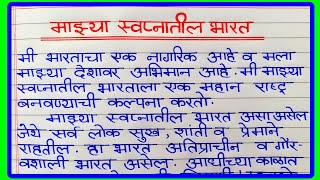 माझ्या स्वप्नातील भारत
मी भारताचा एक नागरिक आहे व मला
माझ्या देशावर अभिमान आहे. मी माझ्या
स्वप्नातील भारताला एक महान राष्ट्र
बनवण्याची कल्पना करतो.
माझ्या स्वप्नातील भारत असा असेल
जेथे सर्व लोक सुख, शांती व प्रेमाने
राहतील. हा भारत अतिप्राचीन व गौर-
वशाली भारत असेल. आधीच्या काळात